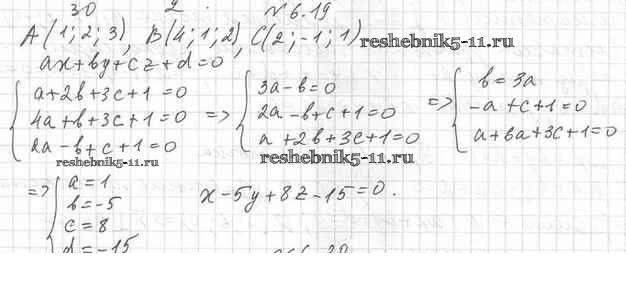 30 2 . № 6.19
A(1; 2; 3), B(4; 1; 2), C(2; -1; 1) reshebnik5-11.ru
ax+by+cz+d=0
{ a+2b+3c+1=0 => { 3a-b=0 => { b=3a
4a+b+3c+1=0 2a-b+c+1=0 -a+c+1=0
2a-b+c+1=0 a+2b+3c+1=0 a+6a+3c+1=0
reshebnik5-11.ru reshebnik5-11.ru
=> { a=1 x-5y+8z-15=0.
b=-5
c=8
d=-15